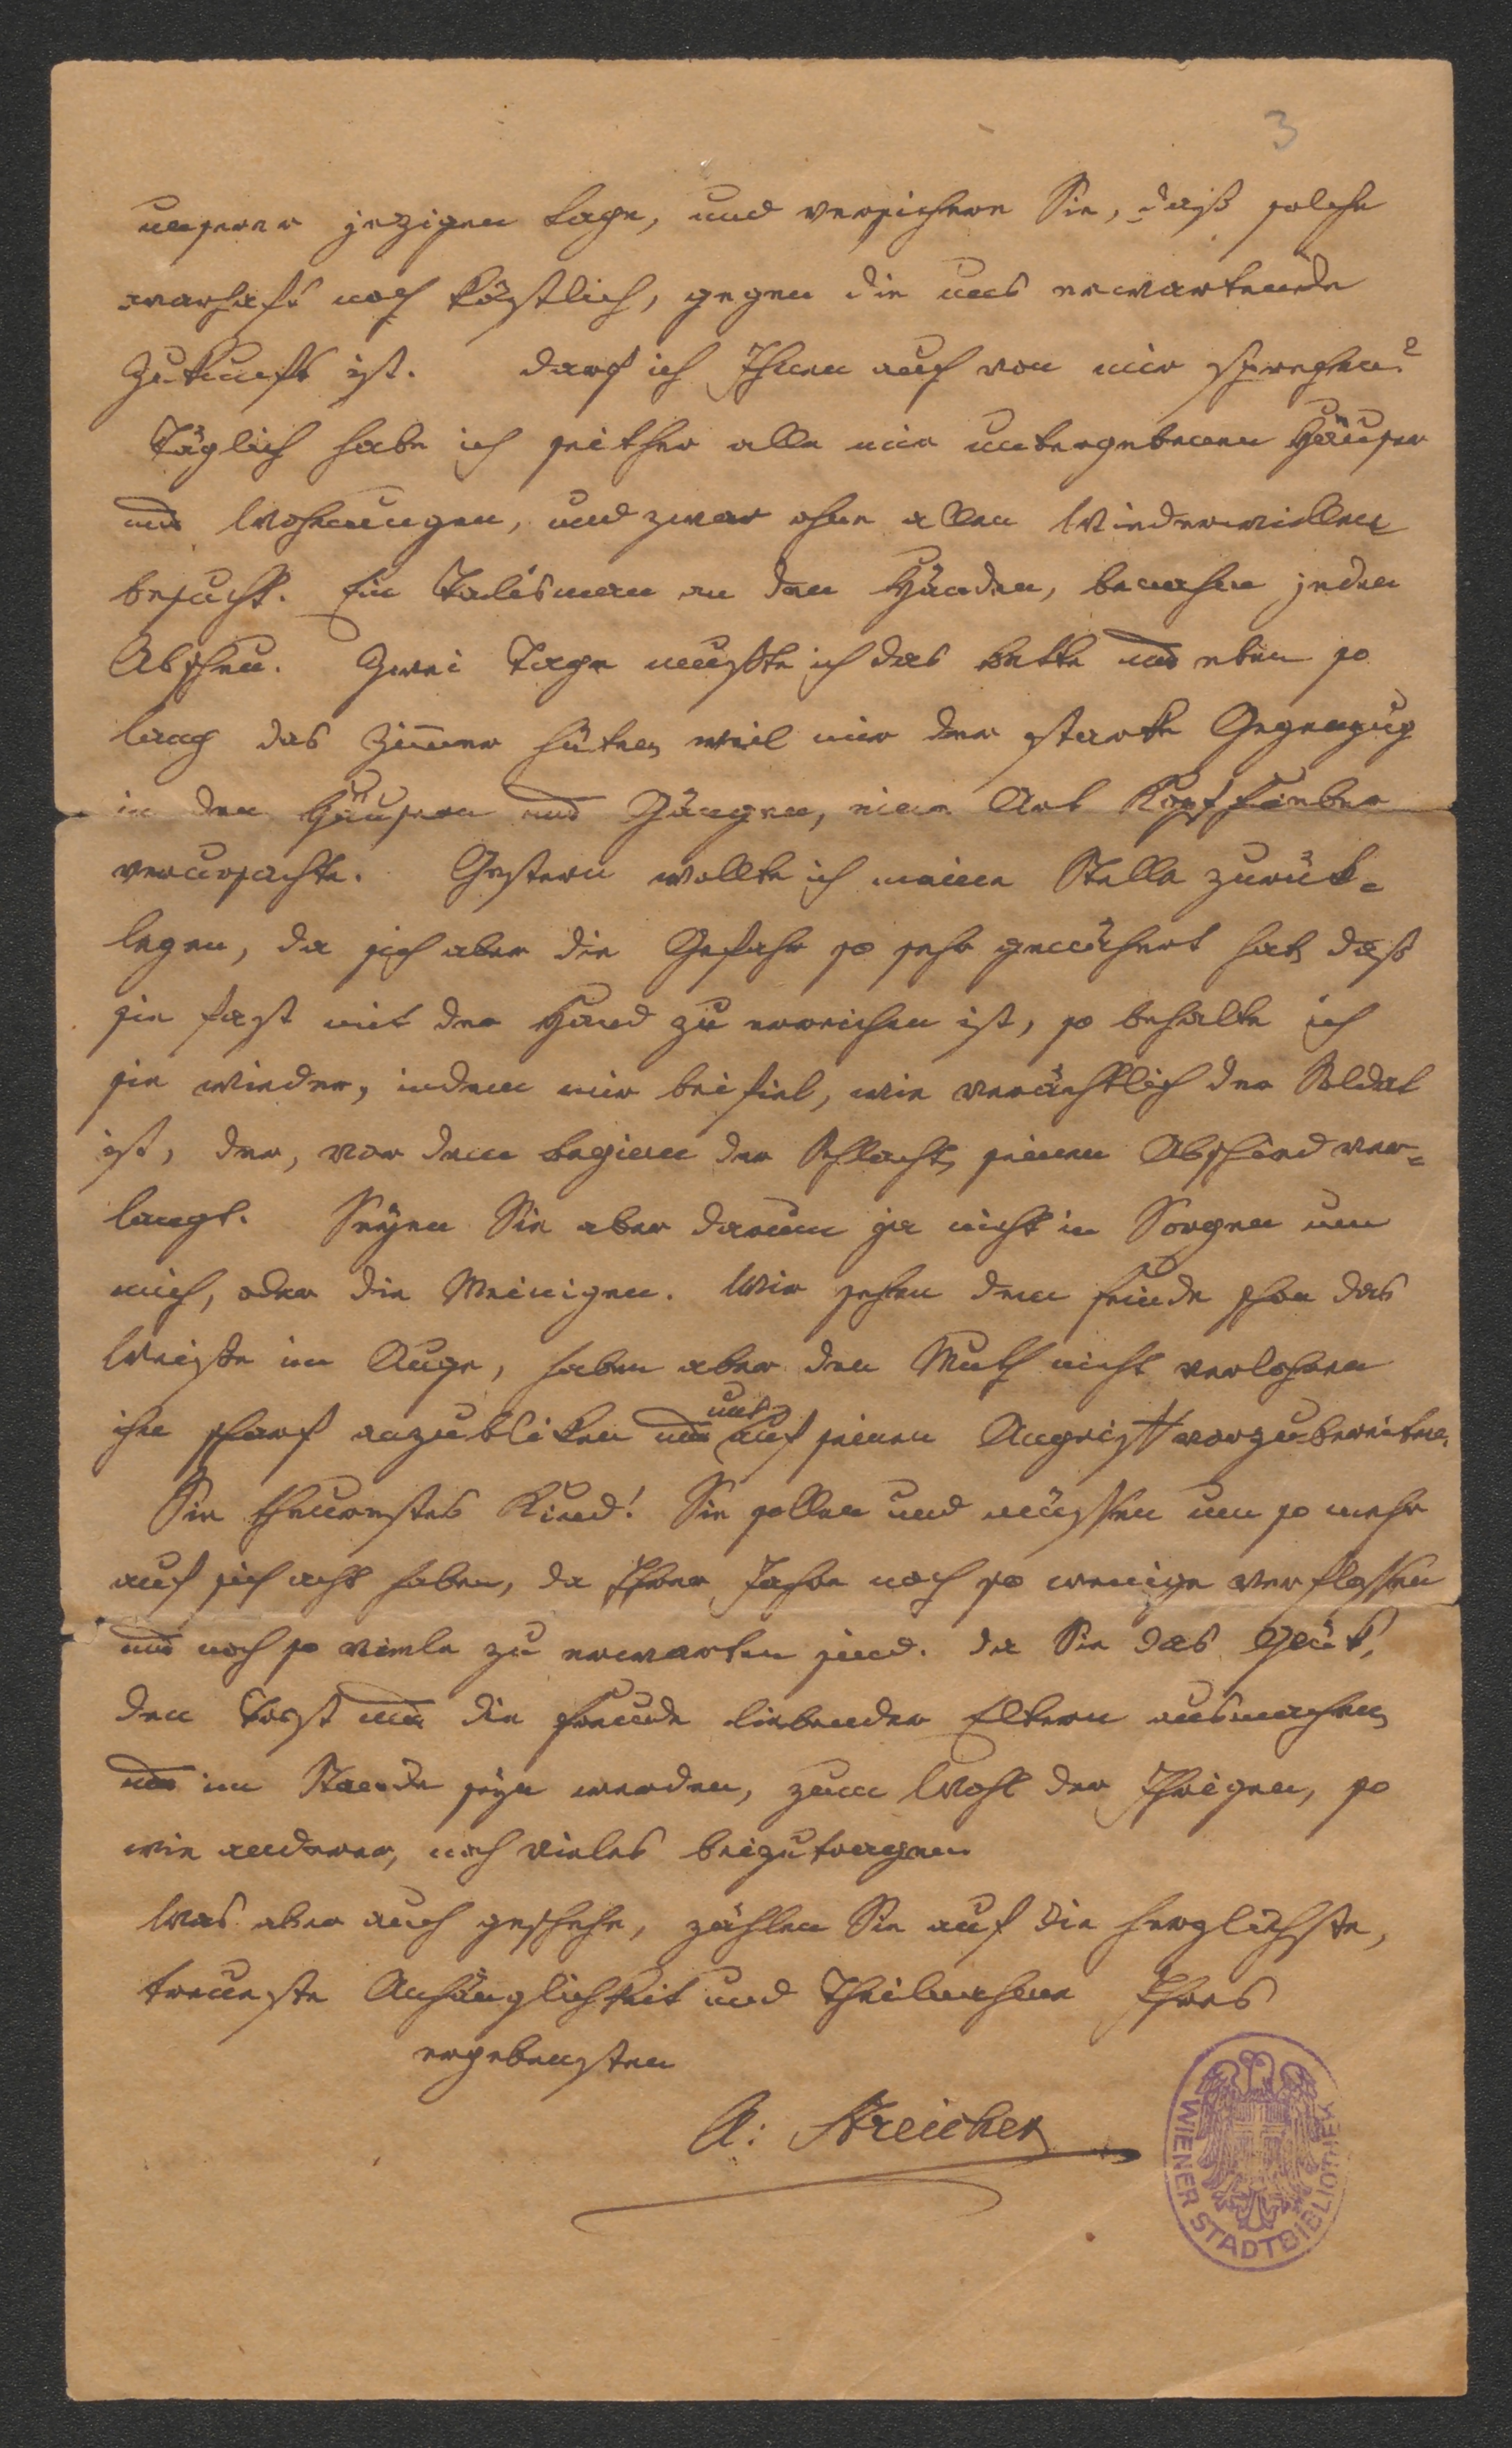 3
unserer jezigen Lage, und versichere Sie, daß solche
warhaft noch köstlich, gegen die uns erwartende
Zukunft ist. Darf ich Ihnen auch von mir sprechen?
Täglich habe ich seither alle mir untergebenen Häuser
und Wohnungen, und zwar ohne allen Wiederwillen
besucht. Ein Talisman an den Händen, benahm jeden
Abscheu. Zwei Tage mußte ich das Bette und eben so
lang das Zimmer hüten, weil mir der starke Gegenzug
in den Häusern und Gängen, eine Art Kopffieber
verursachte. Gestern wollte ich meine Stelle zurük-
legen, da sich aber die Gefahr so sehr genähert hat, daß
sie fast mit der Hand zu erreichen ist, so behalte ich
sie wieder, indem mir beifiel, wie verächtlich der Soldat
ist, der, vor dem Beginn der Schlacht, seinen Abschied ver-
langt. Seyen Sie aber darum ja nicht in Sorgen um
mich, oder die Meinigen. Wir sehen dem Feinde schon das
Weiße im Auge, haben aber den Muth nicht verlohren
ihn scharf anzubliken und auf seinen Angriff vorzubereiten.
uns
Sie theuerstes Kind! Sie sollen und müssen um so mehr
auf sich acht haben, da Ihrer Jahre noch so wenige verflossen
und noch so viele zu erwarten sind. Da Sie das Glük,
den Trost und die Freude liebender Eltern ausmachen,
und im Stande seyn werden, zum Wohl der Ihrigen, so
wie anderer, noch vieles beizutragen.
Was aber auch geschehe, zählen Sie auf die herzlichste,
treueste Anhänglichkeit und Theilnahme Ihres
ergebensten
A: Streicher
WIENER STADTBIBLIOTHEK